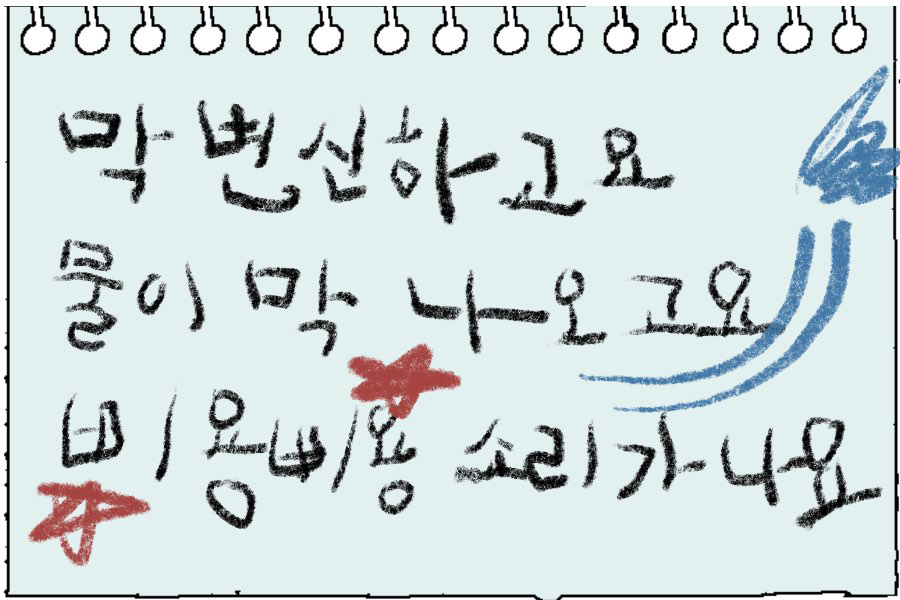 막 변신하고요
물이 막 나오고요
비용비용 소리가 나요